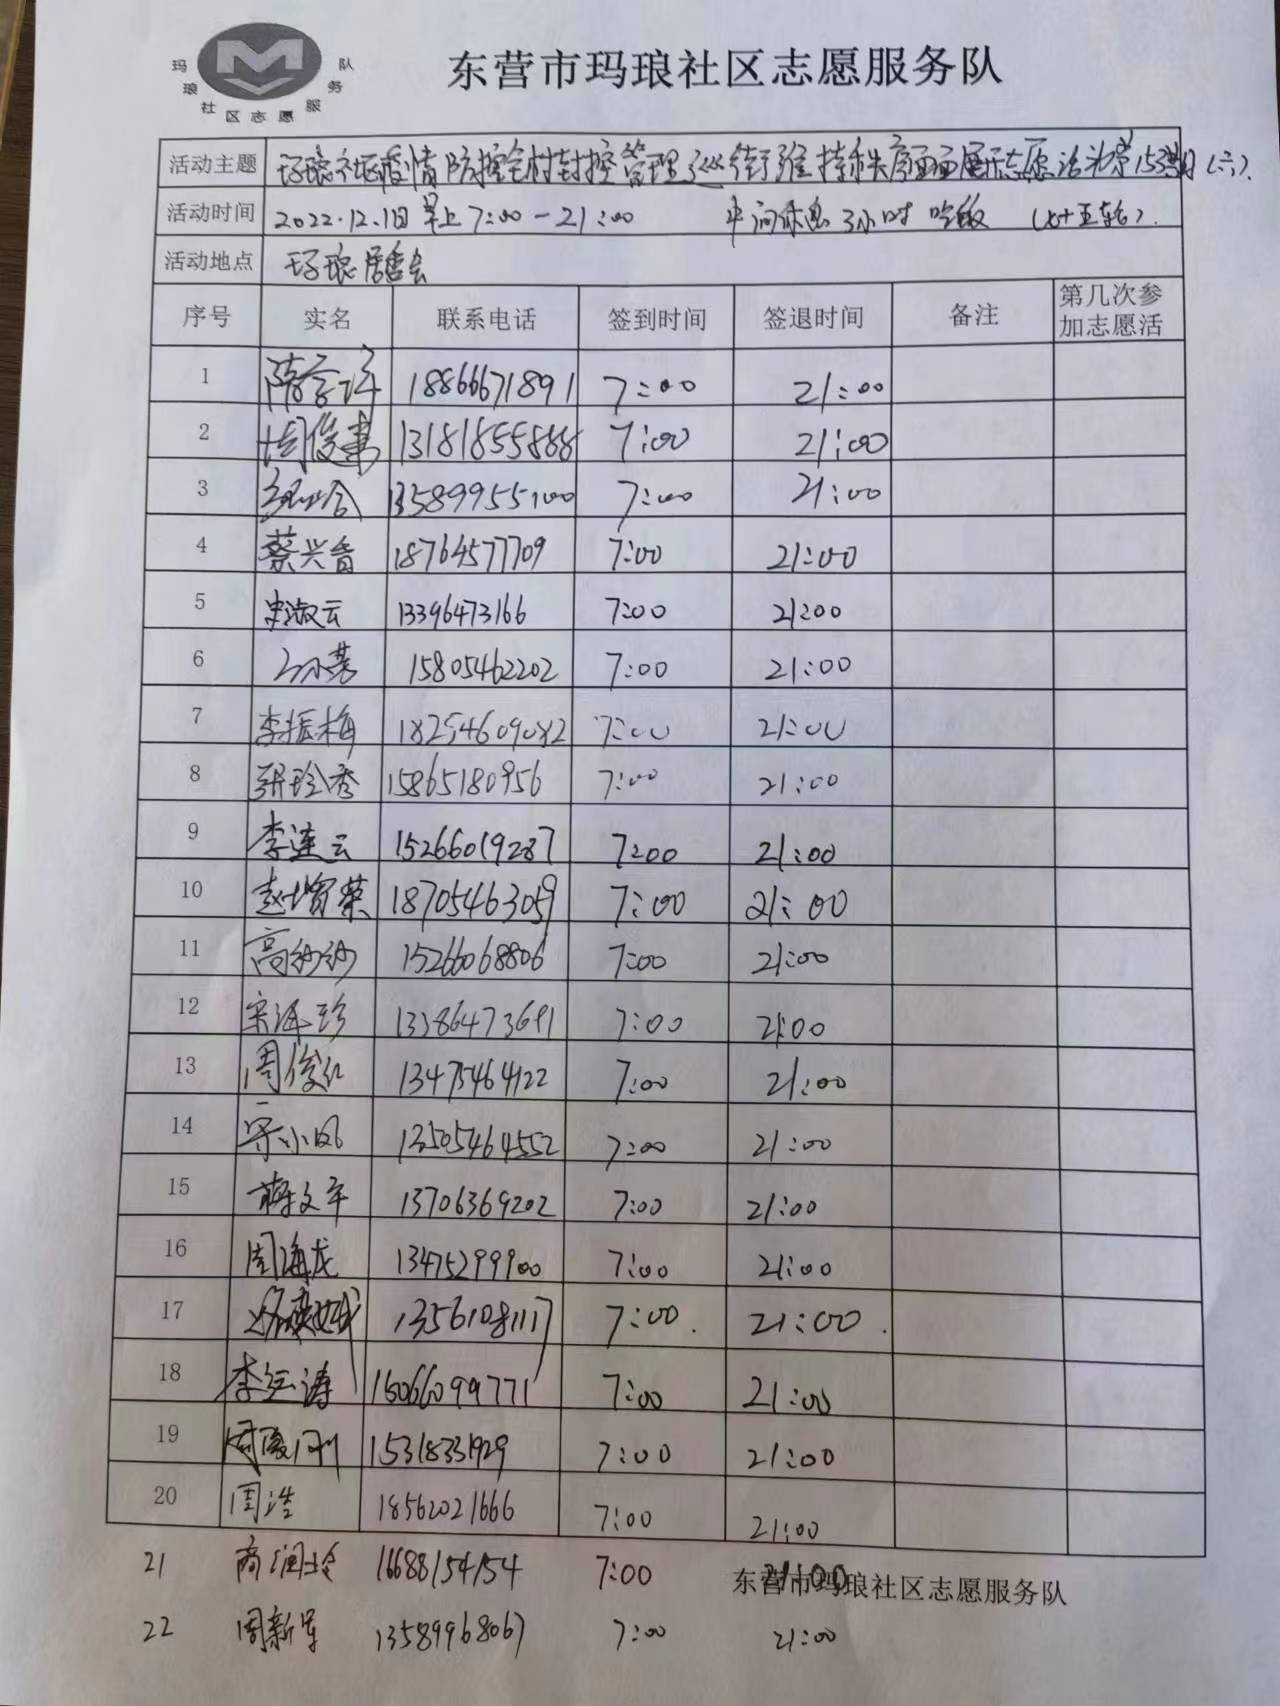 玛琅社区志愿服务队
东营市玛琅社区志愿服务队
活动主题 玛琅社区疫情防控全村封控管理巡街维持秩序 志愿活动第153期(六).
活动时间 2022.12.1日早上7:00-21:00 中间休息3小时吃饭 (七十五轮).
活动地点 玛琅居委会
序号 实名 联系电话 签到时间 签退时间 备注 第几次参加志愿活
1 18866671891 7:00 21:00
2 周俊 13181855888 7:00 21:00
3 13589955100 7:00 21:00
4 蔡兴 18764577709 7:00 21:00
5 史淑云 13396473166 7:00 21:00
6 15805462202 7:00 21:00
7 李振梅 18254609082 7:00 21:00
8 张玲秀 15865180956 7:00 21:00
9 李连云 15266019287 7:00 21:00
10 赵增荣 18705463059 7:00 21:00
11 高纱纱 15266068806 7:00 21:00
12 宋 珍 7:00 21:00
13 周俊红 13475464122 7:00 21:00
14 宋小凤 13505464552 7:00 21:00
15 蒋文军 13706369202 7:00 21:00
16 周海龙 13475299900 7:00 21:00
17 13561081117 7:00. 21:00.
18 李 涛 15066099771 7:00 21:00
19 周俊刚 15318331929 7:00 21:00
20 周浩 18562021666 7:00 21:00
21 商润玲 16688154154 7:00 21:00
东营市玛琅社区志愿服务队
22 周新军 13589968067 7:00 21:00